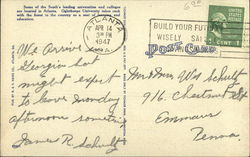 Some of the South's leading universities and colleges
are located in Atlanta. Oglethorpe University takes rank
with the finest in the country as a seat of culture and
education.
ATLANTA
APR 14
PM
1947
BUILD YOUR FUTURE
WISELY
POST CARD
We Arrive
Georgia but
might expect
to leave Monday
afternoon sometime
James R Schultz
Mr & Mrs Wm Schultz
916 Chestnut St
Emmaus
Penna